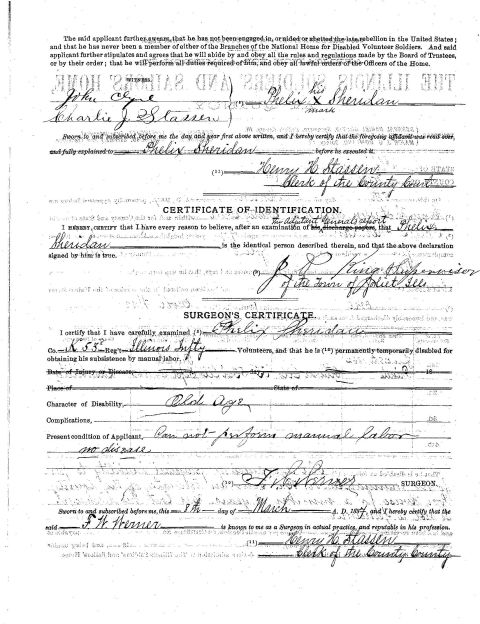 The said applicant further swears, that he has not been engaged in, or aided or abetted the late rebellion in the United States;
and that he has never been a member of either of the Branches of the National Home for Disabled Volunteer Soldiers. And said
applicant further stipulates and agrees that he will abide by and obey all the rules and regulations made by the Board of Trustees,
or by their order; that he will perform all duties required of him, and obey all lawful orders of the Officers of the Home.
WITNESS.
John his
Phelix x Sheridan
Charlie J Stassen mark
Sworn to and subscribed before me the day and year first above written, and I hereby certify that the foregoing affidavit was read over,
and fully explained to Phelix Sheridan before he executed it.
(11) Henry H. Stassen
Clerk of the County Court
CERTIFICATE OF IDENTIFICATION.
the Adjutant Generals report
I HEREBY CERTIFY that I have every reason to believe, after an examination of his discharge papers, that Phelix
Sheridan is the identical person described therein, and that the above declaration
signed by him is true.
King Supervisor
of the Town of Joliet Ills
SURGEON'S CERTIFICATE.
I certify that I have carefully examined Phelix Sheridan
Co. K 55 Reg't Illinois Infty Volunteers, and that he is permanently temporarily disabled for
obtaining his subsistence by manual labor.
Date of Injury or Disease, 18
Place of State of
Character of Disability, Old Age
Complications,
Present condition of Applicant, Can not perform manual labor
no disease
(10) F. W. Werner SURGEON.
Sworn to and subscribed before me, this 8th day of March A. D. and I hereby certify that the
said F. W. Werner is known to me as a Surgeon in actual practice, and reputable in his profession.
(11) Henry H. Stassen
Clerk of the County County